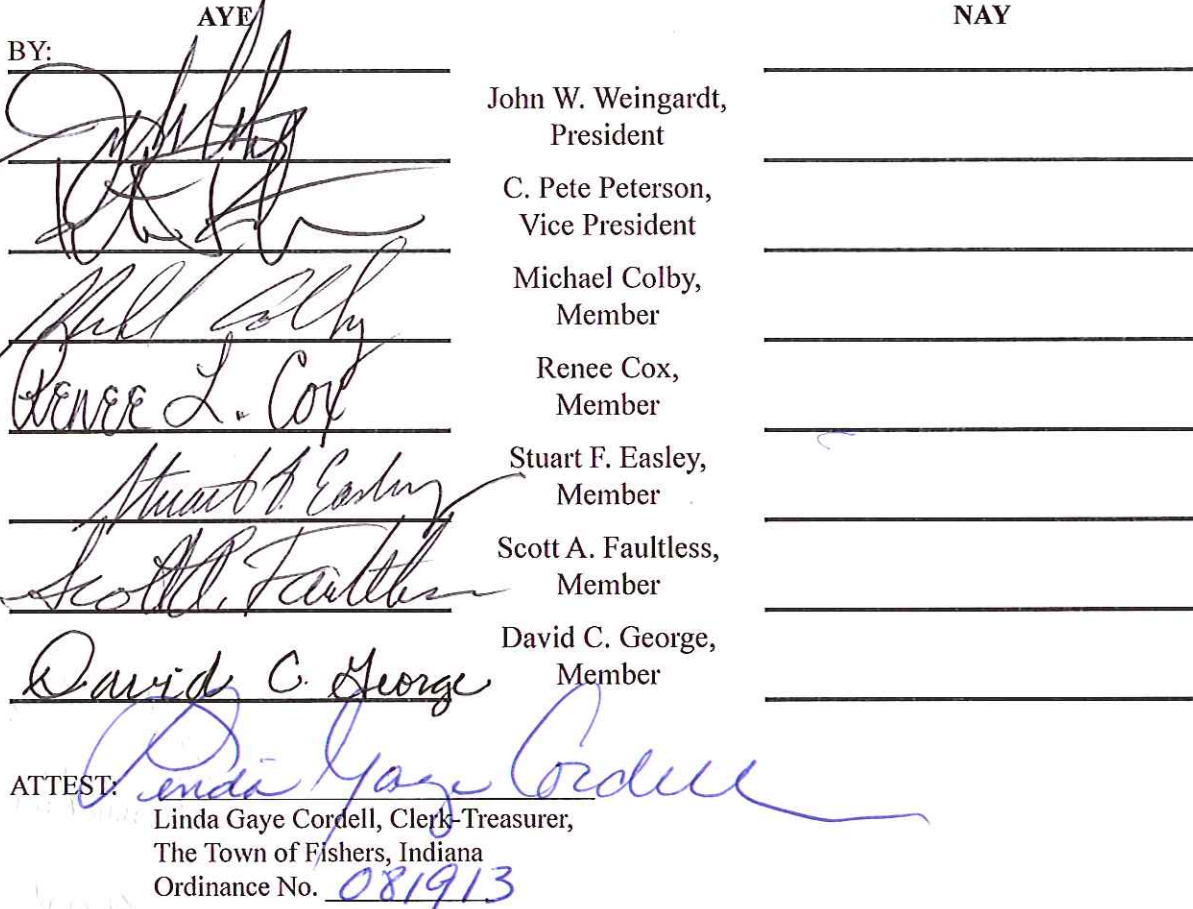 AYE NAY
BY:
John W. Weingardt,
President
C. Pete Peterson,
Vice President
Michael Colby,
Member
Renee L. Cox
Renee Cox,
Member
Stuart F. Easley
Stuart F. Easley,
Member
Scott A. Faultless
Scott A. Faultless,
Member
David C. George
David C. George,
Member
ATTEST: Linda Gaye Cordell
Linda Gaye Cordell, Clerk-Treasurer,
The Town of Fishers, Indiana
Ordinance No. 081913